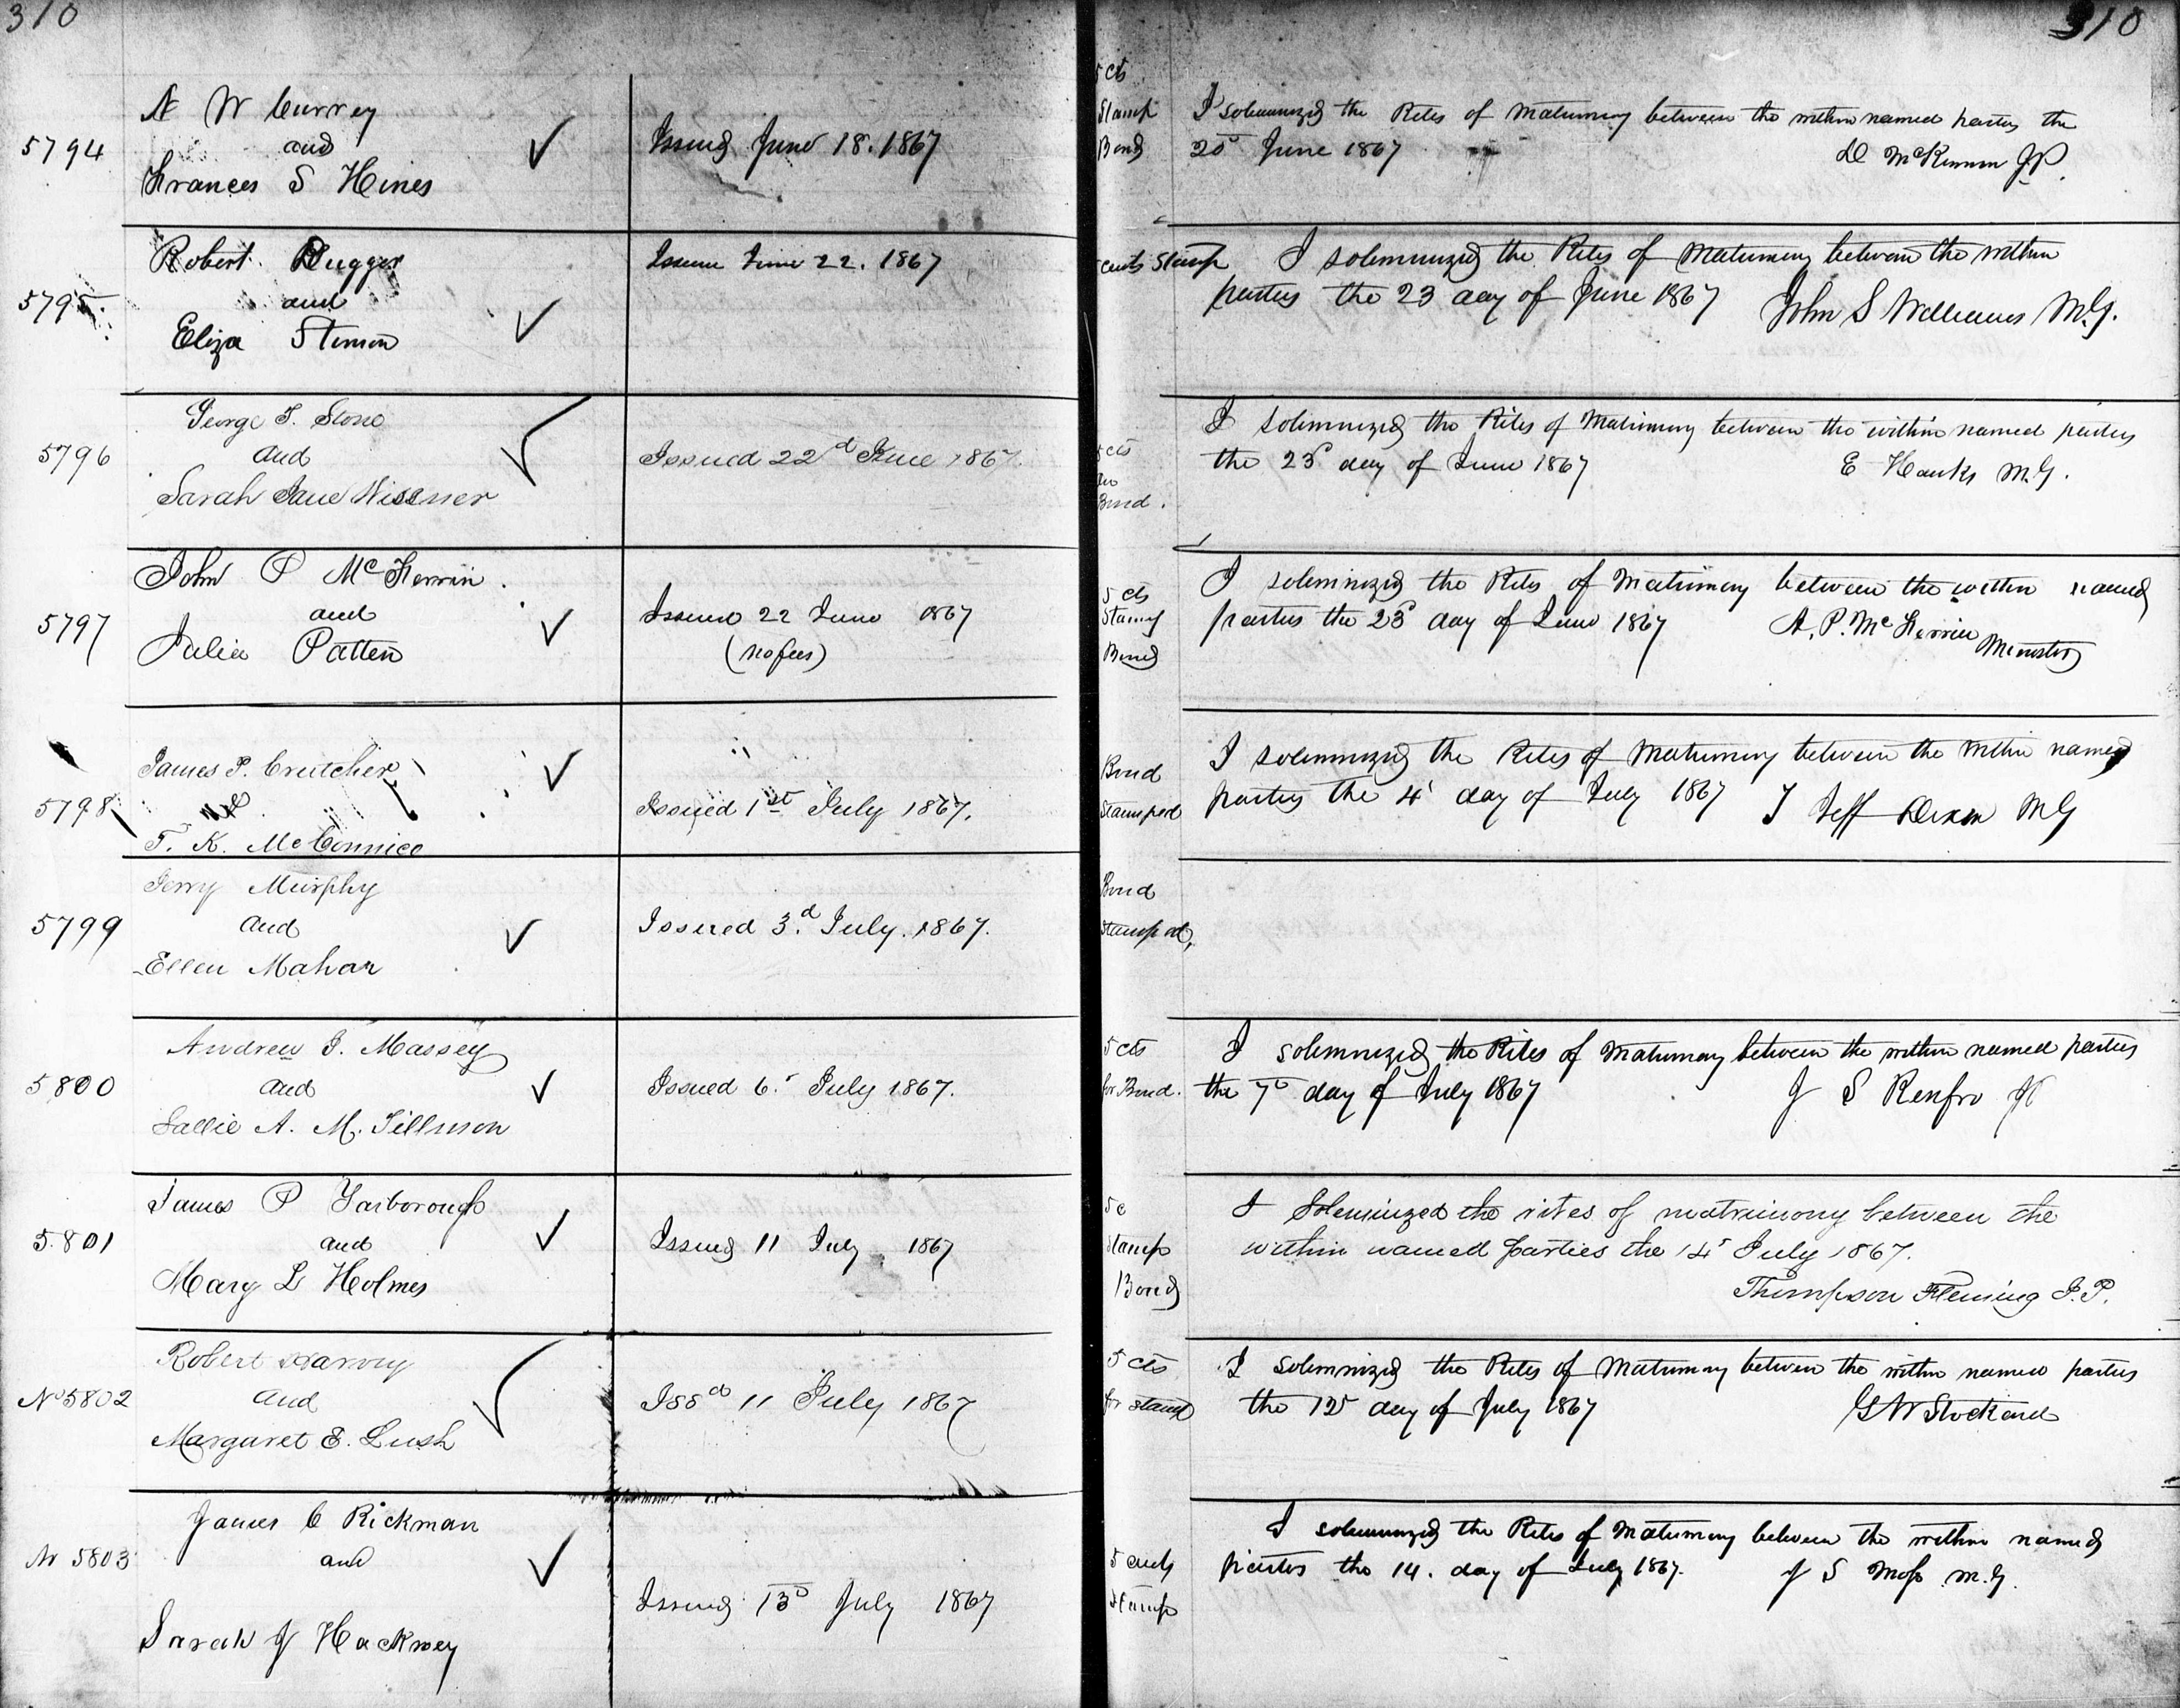 310
5794
N W Currey
and
Frances S Hines
Issued June 18. 1867
5795
Robert Dugger
and
Eliza Stinson
Issued June 22. 1867
5796
George T. Stone
and
Sarah Jane Wissner
Issued 22d June 1867.
5797
John P McFerrin
and
Julia Patten
Issued 22 June 1867
(no fees)
5798
James P. Crutcher
&
T. K. McConnico
Issued 1st July 1867.
5799
Jerry Murphy
and
Ellen Mahar
Issued 3d July. 1867.
5800
Andrew J. Massey
and
Sallie A. M. Tillman
Issued 6. July 1867.
5801
James P Yarborough
and
Mary L Holmes
Issued 11 July 1867
No 5802
Robert Harvey
and
Margaret E. Lush
Issd 11 July 1867
No 5803
James C Rickman
and
Sarah J Hackney
Issued 13 July 1867
310
5 cts
Stamp
Bond
I solemnized the Rites of Matrimony between the within named parties the
20 June 1867
D McKinnon JP.
cents Stamp
I solemnized the Rites of Matrimony between the within
parties the 23 day of June 1867
John S Williams M.G.
5 cts
on
Bond.
I solemnized the Rites of Matrimony between the within named parties
the 23d day of June 1867
E Hanks M.G.
5 cts
Stamp
Bond
I solemnized the Rites of Matrimony between the within named
parties the 23d day of June 1867
A. P. McFerrin
Minister
Bond
Stamped
I solemnized the Rites of Matrimony between the within named
parties the 4 day of July 1867
T Jeff Dixon MG
Bond
Stamped,
5 cts
for Bond.
I solemnized the Rites of Matrimony between the within named parties
the 7 day of July 1867
J S Renfro JP
5c
stamp
Bond
I Solemnized the rites of matrimony between the
within named parties the 14 July 1867.
Thompson Fleming J.P.
5 cts
for stamp
I solemnized the Rites of Matrimony between the within named parties
the 12 day of July 1867
G W Stockard
5 cents
Stamp
I solemnized the Rites of Matrimony between the within named
parties the 14. day of July 1867.
J S Moss M.G.